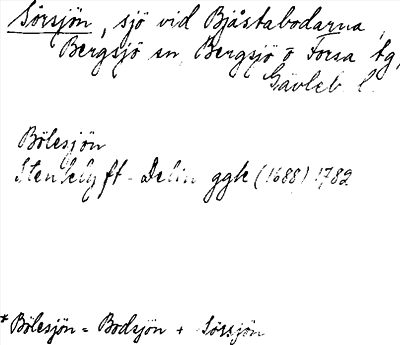 Sörsjön, sjö vid Bjåstabodarna,
Bergsjö sn, Bergsjö o Forsa tg,
Gävleb. l.
Bölesjön
Stenklyft - Delin ggk (1688) 1782
* Bölesjön = Bodsjön + Sörsjön